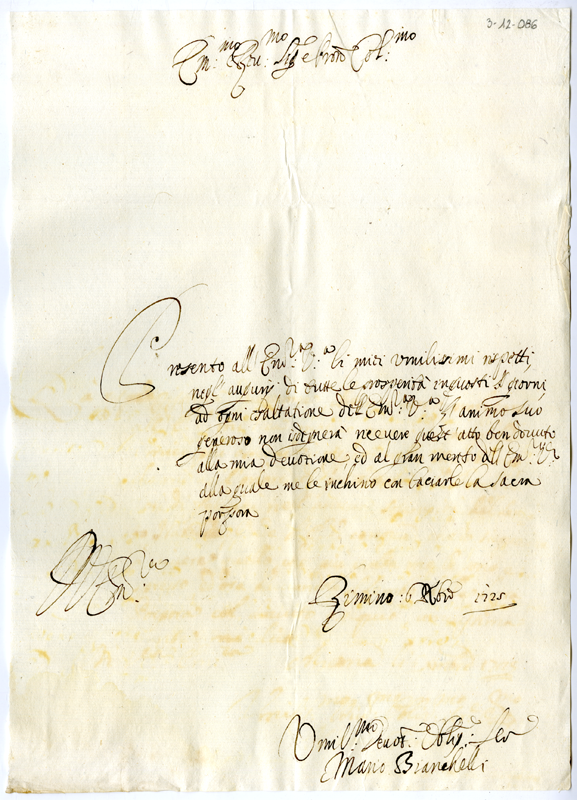 3-12-086
Em.mo Rev.mo Sig.e Prõn Col.mo
Presento all Em.za V.a li miei umilissimi rispetti,
negl'augurij di tutte le prosperità in questi S. giorni,
ad ogni esaltatione dell'Em.za V.a. L'animo suo
generoso non isdegnerà ricevere quest'atto ben dovuto
alla mia devotione, ed al gran merito dell'Em.za V.a
alla quale me le inchino con baciarle la sacra
porpora
Rimino: 6 Xbre 1725
Umil.mo Devot. Oblig. Ser
Mario Bianchelli